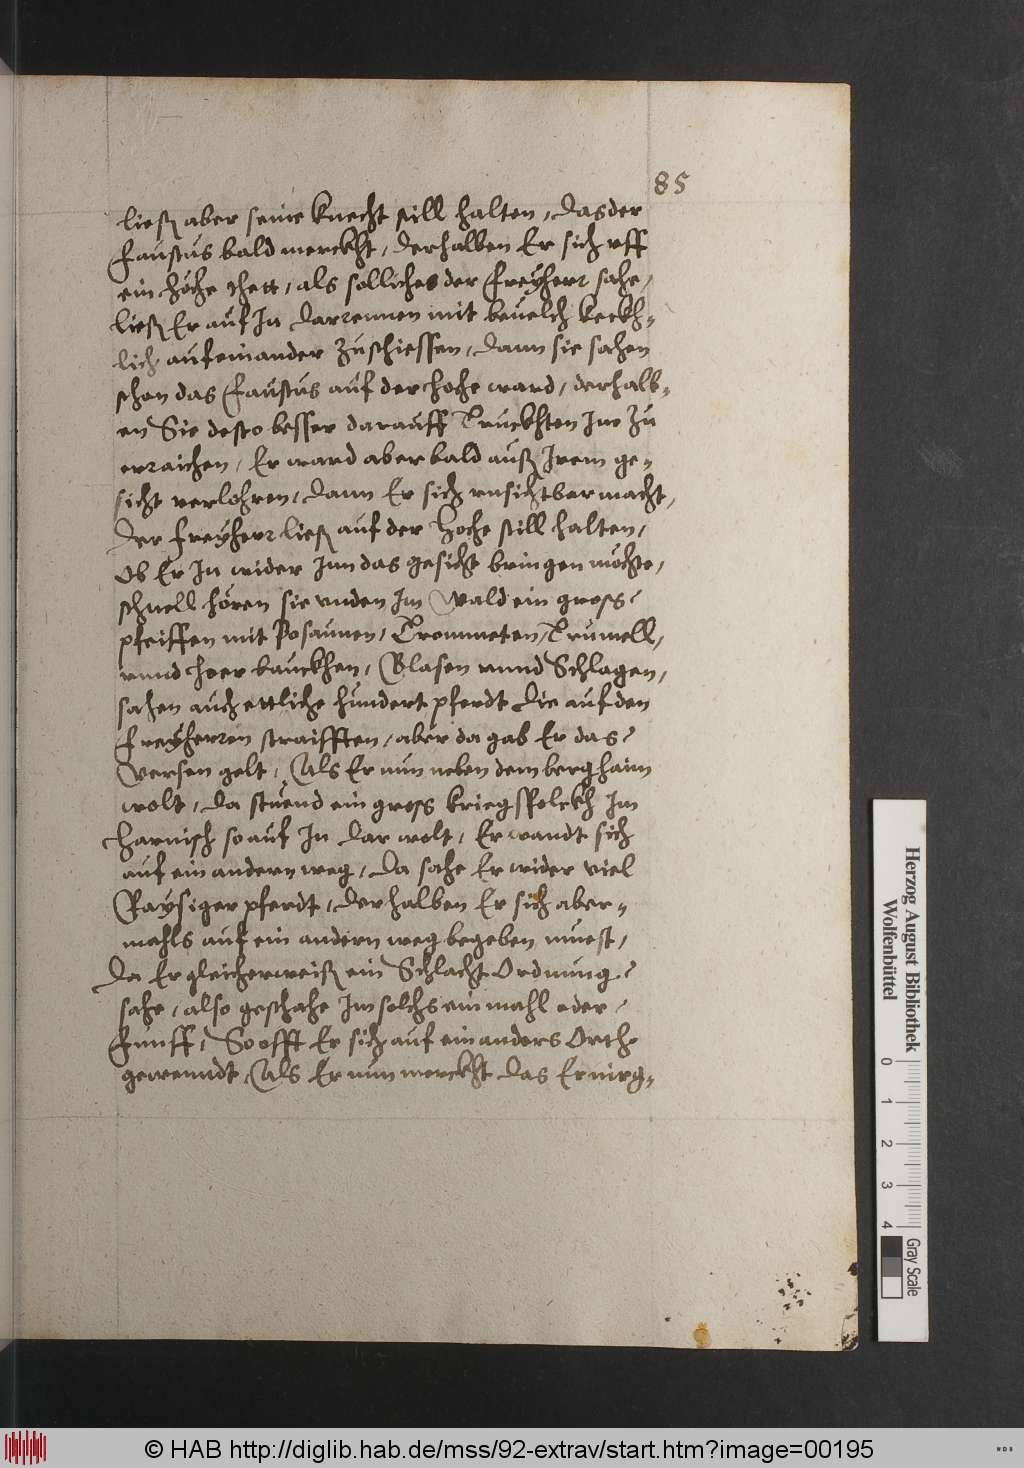 85
ließ aber seine knecht still halten, das der
Faustus bald merckht, derhalben Er sich uff
ein höche thett, als solliches der Freyherr sahe,
ließ Er auf In darrennen mit bevelch keckh-
lich auf einander zuschiessen, dann sie sahen
schon das Faustus auf der hoche ward, derhalb-
en Sie desto besser darauff Truckhten Ine zu
erraichen, Er ward aber bald auß Irem ge-
sicht verlohren, dann Er sich vnsichtber macht,
Der freyherr ließ auf der hoche still halten,
Ob Er In wider Inn das gesicht bringen möchte,
schnell hören sie vnden Im Wald ein gross
pfeiffen mit Posaunen, Trommeten, Trumell,
vnnd heerbauckhen, Blasen vnnd Schlagen,
sahen auch ettliche hundert pferdt die auf den
Freyherren straifften, aber da gab Er das
Versen gelt, Als Er nun neben dem berg haim
wolt, da stuend ein gross kriegsfolckh Im
harnisch so auf In dar wolt, Er wandt sich
auf ein andern weg, Da sahe Er wider viel
Raysiger pferdt, derhalben Er sich aber-
mahls auf ein andern weg begeben muest,
Da Er gleicherweiß ein Schlacht Ordnung
sahe, also geschahe Im solchs ein mahl oder
Funff, So offt Er sich auf ein anders Orth
gewenndt, Als Er nun merckht das Er nirg-
Herzog August Bibliothek
Wolfenbüttel
0 1 2 3 4
Gray Scale
© HAB http://diglib.hab.de/mss/92-extrav/start.htm?image=00195
WDB